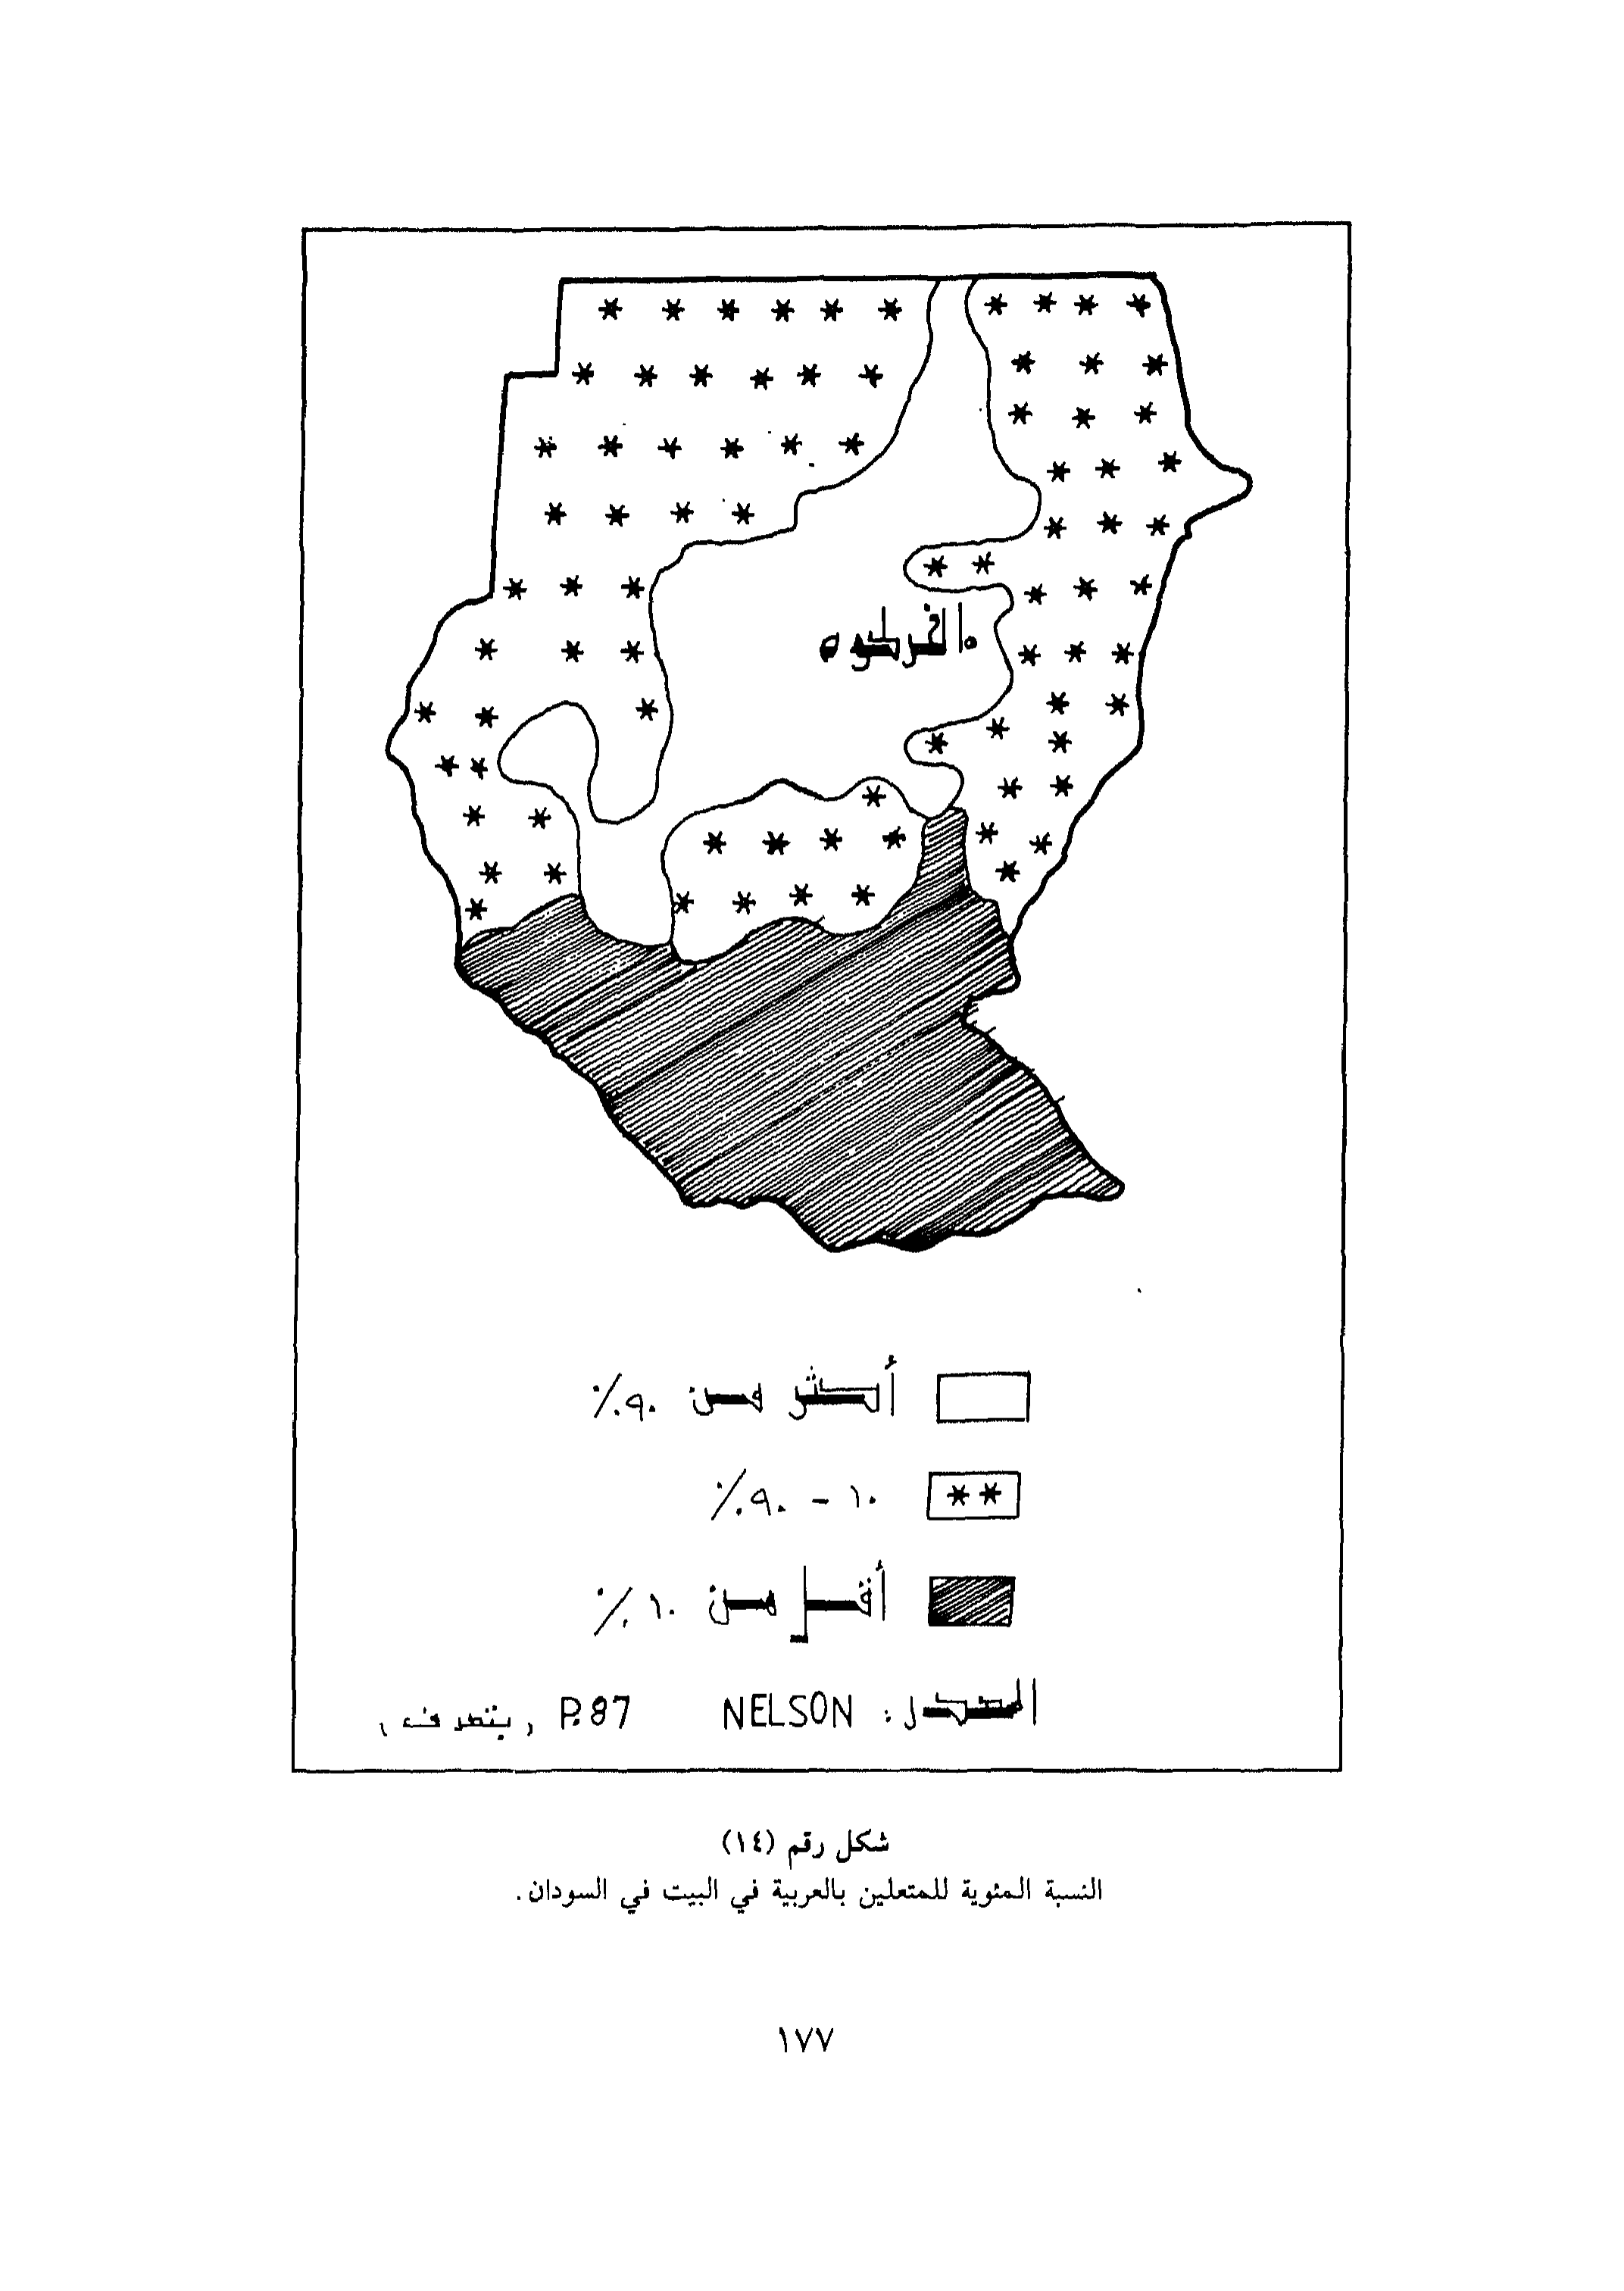 الخرطوم
أكثر من ٩٠٪
١٠ - ٩٠٪
أقل من ١٠٪
المصدر: NELSON P.87 (بتصرف)
شكل رقم (١٤)
النسبة المئوية للمتعلين بالعربية في البيت في السودان.
١٧٧